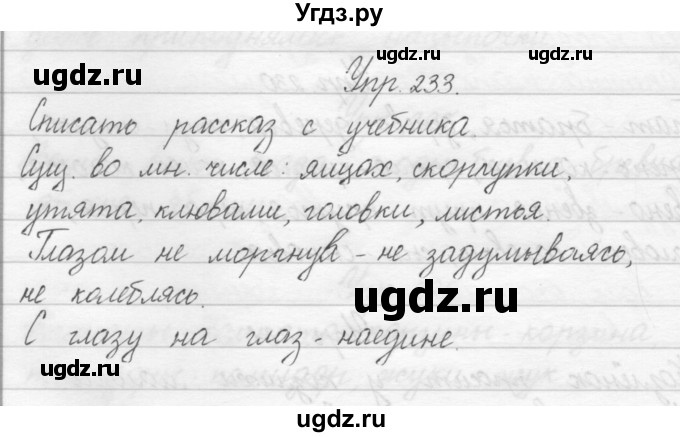 Угдз.ру
ugdz.ru
ugdz.ru
ugdz.ru
Упр. 233.
Списать рассказ с учебника.
ugdz.ru
Сущ. во мн. числе: яйцах, скорлупки,
утята, клювами, головки, листья.
Глазом не моргнув - не задумываясь,
не колеблясь.
ugdz.ru
С глазу на глаз - наедине.
ugdz.ru
ugdz.ru
ugdz.ru